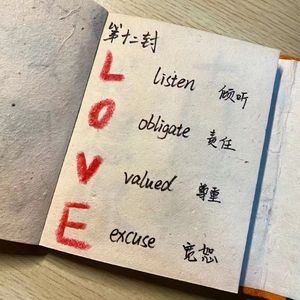 第十二封
L listen 倾听
O obligate 责任
V valued 尊重
E excuse 宽恕